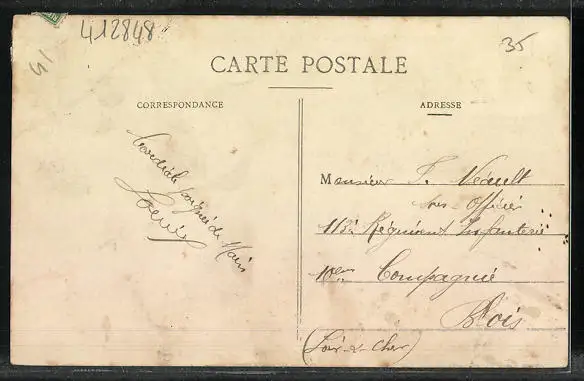 412848
35
CARTE POSTALE
CORRESPONDANCE
ADRESSE
Cordiale poignée de Main
Monsieur F. Nérault
sous Officier
113e Régiment Infanterie
10eme Compagnie
Blois
(Loir-&-Cher)